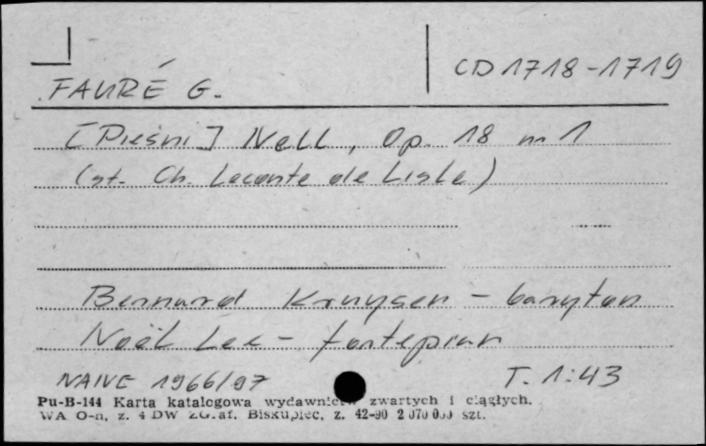 CD 1718-1719
FAURÉ G.
[Pieśni] Nell, Op. 18 nr 1
(st. Ch. Leconte de Lisle)
Bernard Kruysen - baryton
Noël Lee - fortepian
NAIVE 1966/97 T. 1:43
Pu-B-144 Karta katalogowa wydawnictw zwartych i ciągłych.
WA O-n, z. 4 DW ZG.af. Biskupiec, z. 42-90 2 070 000 szt.